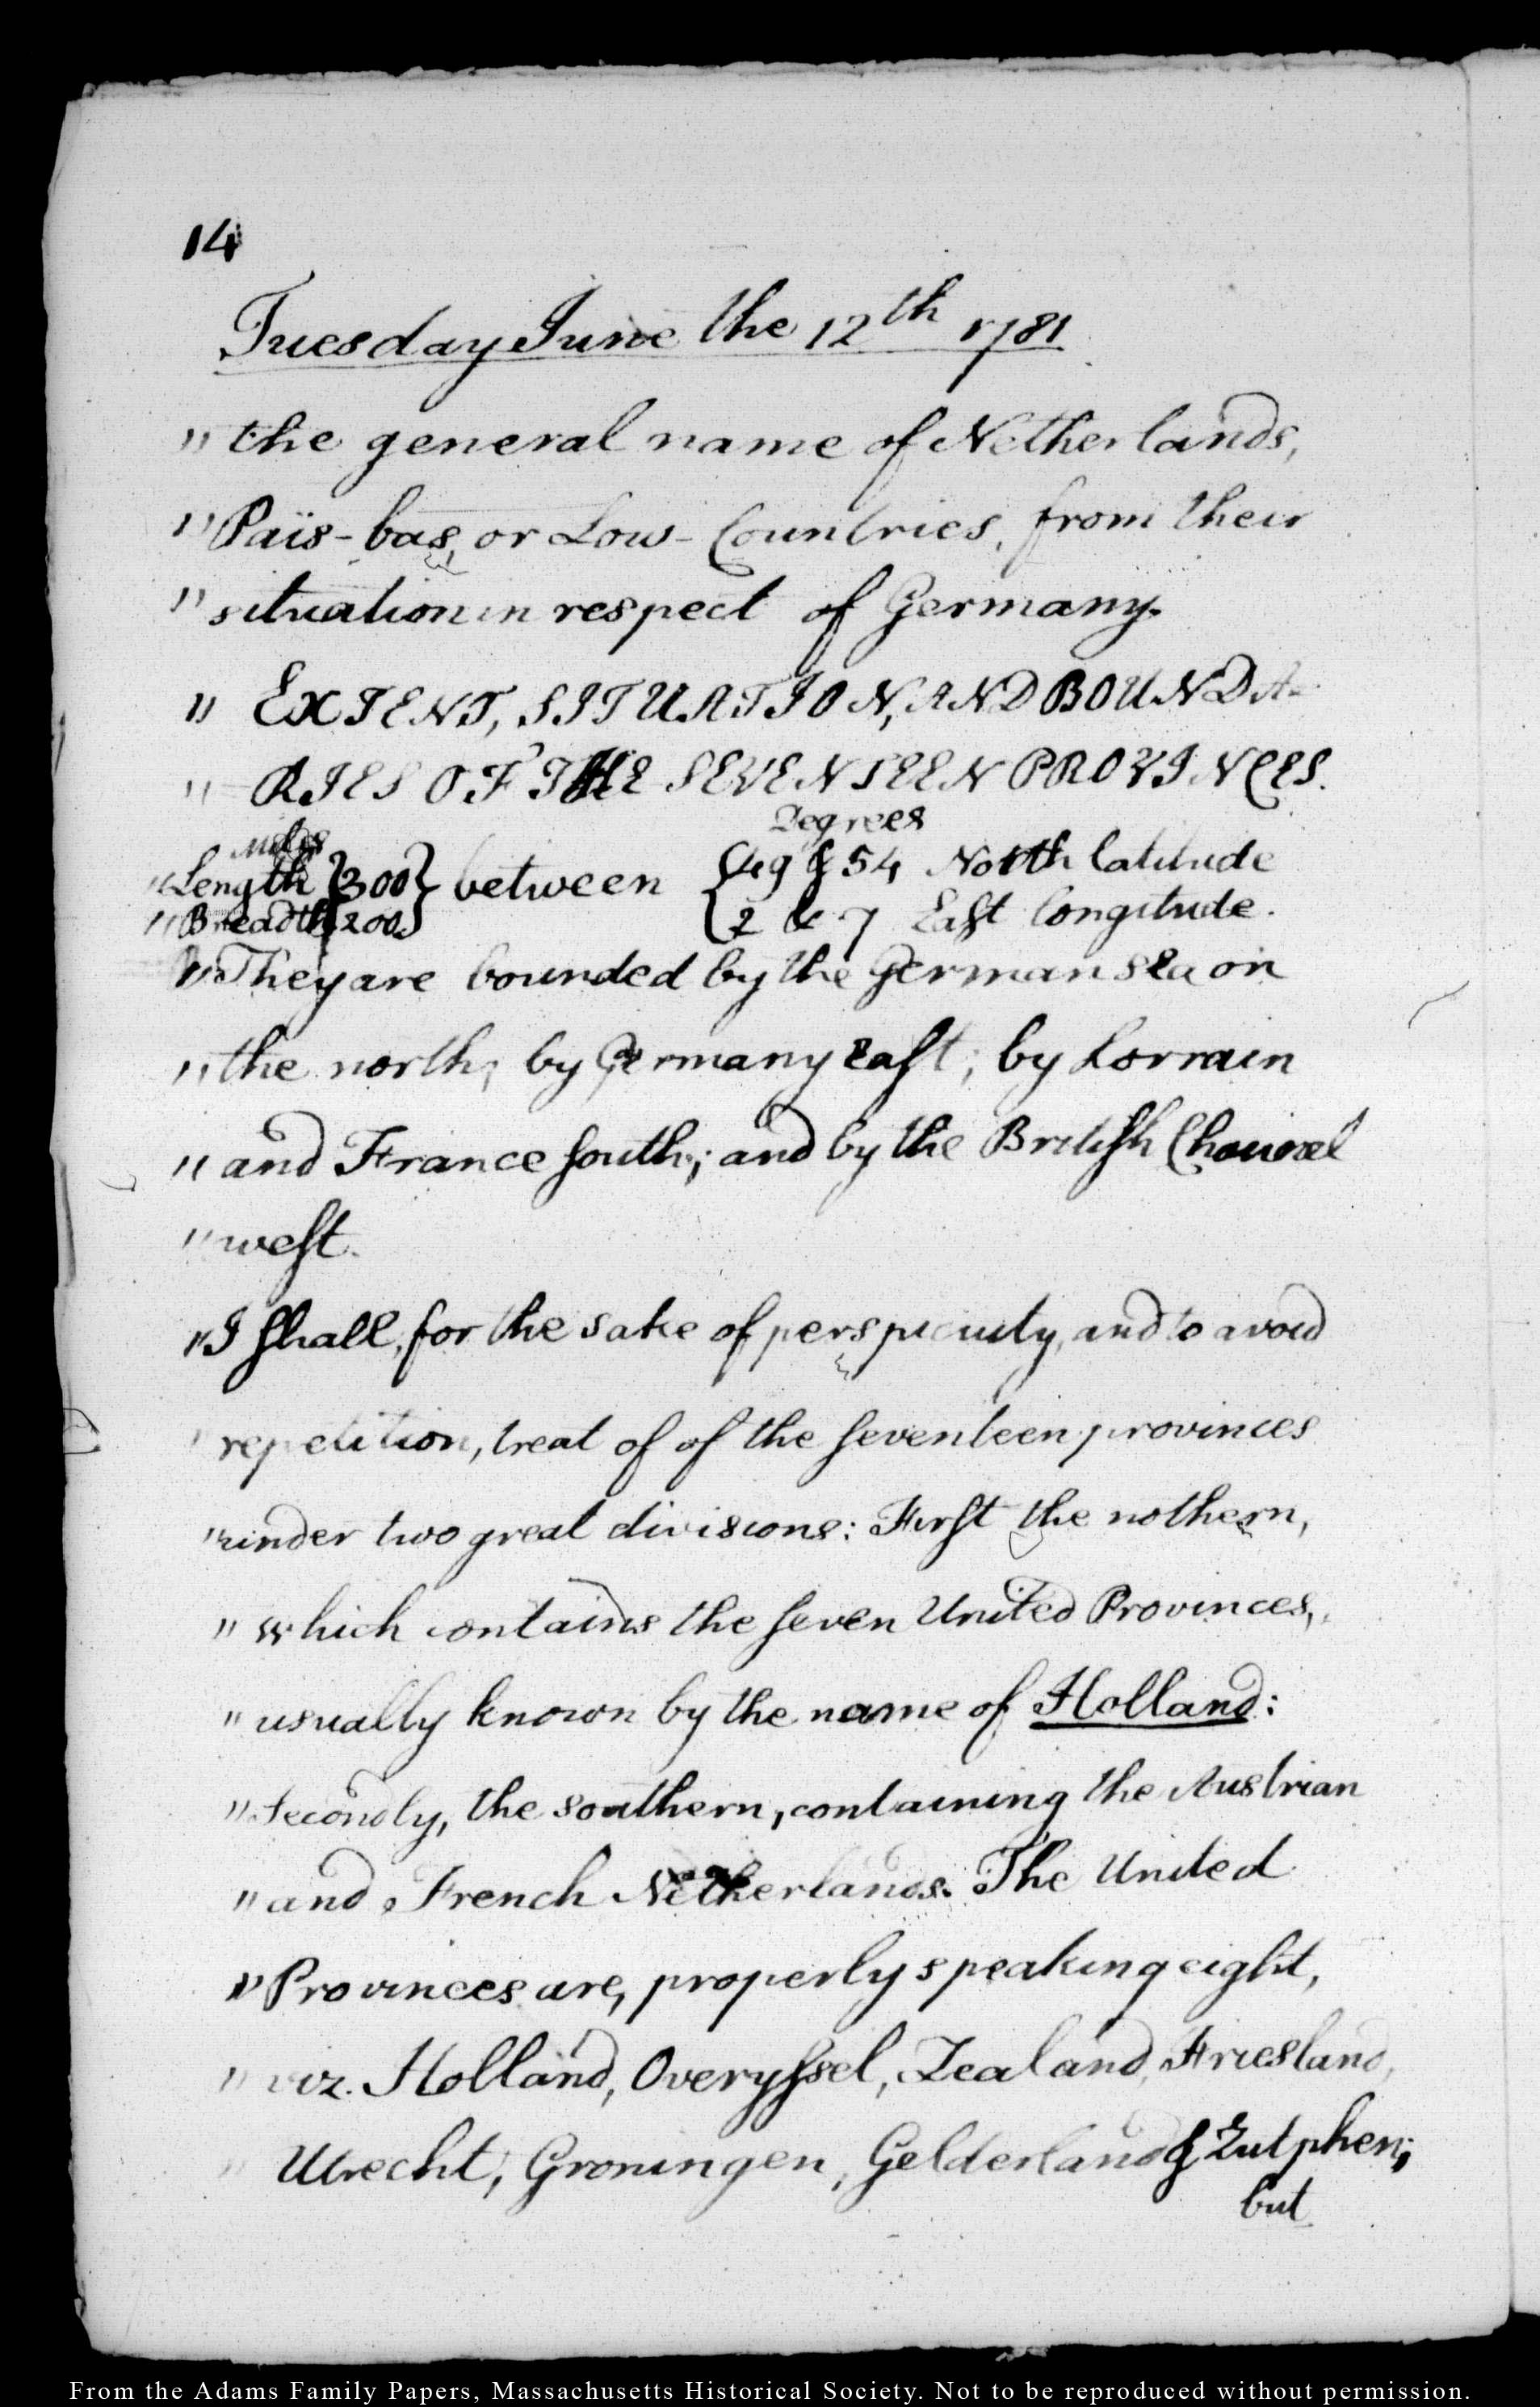 14
Tuesday June the 12th 1781
" the general name of Netherlands,
" Païs-bas, or Low-Countries, from their
" situation in respect of Germany.
" EXTENT, SITUATION, AND BOUNDA-
" RIES OF THE SEVENTEEN PROVINCES.
Miles Degrees
" Length } 300 } between { 49 & 54 North latitude
" Breadth } 200. } { 2 & 7 East longitude.
" They are bounded by the German sea on
" the north; by Germany east; by Lorrain
" and France south; and by the British Channel
" west.
" I shall, for the sake of perspicuity, and to avoid
" repetition, treat of of the seventeen provinces
" under two great divisions: First the nothern,
" which contains the seven United Provinces,
" usually known by the name of Holland:
" Secondly, the southern, containing the Austrian
" and French Netherlands. The United
" Provinces are, properly speaking eight,
" viz. Holland, Overyssel, Zealand, Friesland,
" Utrecht, Groningen, Gelderland & Zutphen;
but
From the Adams Family Papers, Massachusetts Historical Society. Not to be reproduced without permission.